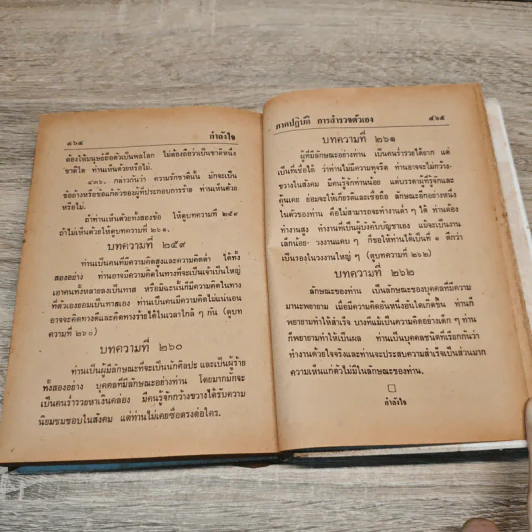 ๔๖๔ กำลังใจ
ต้องให้มนุษย์ถือตัวเป็นพลโลก ไม่ต้องถือว่าเป็นชาติหนึ่ง
ชาติใด ท่านเห็นด้วยหรือไม่.
๔๓๖. กล่าวกันว่า ความรักชาตินั้น มักจะเป็น
ข้ออ้างหรือข้อแก้ตัวของผู้ที่ประกอบการร้าย ท่านเห็นด้วย
หรือไม่.
ถ้าท่านเห็นด้วยทั้งสองข้อ ให้ดูบทความที่ ๒๕๙
ถ้าไม่เห็นด้วยให้ดูบทความที่ ๒๖๑.
บทความที่ ๒๕๙
ท่านเป็นคนที่มีความคิดสูงและความคิดต่ำ ได้ทั้ง
สองอย่าง ท่านอาจมีความคิดในทางที่จะเป็นเจ้าเป็นใหญ่
เอาคนทั้งหลายลงเป็นทาส หรือมิฉะนั้นก็มีความคิดในทาง
ที่ตัวเองยอมเป็นทาสเอง ท่านเป็นคนมีความคิดไม่แน่นอน
อาจจะคิดทางดีและคิดทางร้ายได้ในเวลาใกล้ ๆ กัน (ดูบท
ความที่ ๒๖๐)
บทความที่ ๒๖๐
ท่านเป็นผู้มีลักษณะที่จะเป็นนักศิลปะ และเป็นผู้ร้าย
ทั้งสองอย่าง บุคคลที่มีลักษณะอย่างท่าน โดยมากมักจะ
เป็นคนร่ำรวยหาเงินคล่อง มีคนรู้จักกว้างขวางได้รับความ
นิยมชมชอบในสังคม แต่ท่านไม่เคยซื่อตรงต่อใคร.
ภาคปฏิบัติ การสำรวจตัวเอง ๔๖๕
บทความที่ ๒๖๑
ผู้ที่มีลักษณะอย่างท่าน เป็นคนร่ำรวยได้ยาก แต่
เป็นที่เชื่อได้ ว่าท่านไม่มีความทุจริต ท่านอาจจะไม่กว้าง-
ขวางในสังคม มีคนรู้จักท่านน้อย แต่บรรดาผู้ที่รู้จักและ
คุ้นเคย ย่อมจะให้เกียรติและเชื่อถือ ลักษณะอีกอย่างหนึ่ง
ในตัวของท่าน คือไม่สามารถจะทำงานต่ำ ๆ ได้ ท่านต้อง
ทำงานสูง ทำงานที่เป็นผู้บังคับบัญชาเอง แม้จะเป็นงาน
เล็กน้อย- วงงานแคบ ๆ ก็ขอให้ท่านได้เป็นที่ ๑ ดีกว่า
เป็นรองในวงงานใหญ่ ๆ (ดูบทความที่ ๒๖๒)
บทความที่ ๒๖๒
ลักษณะของท่าน เป็นลักษณะของบุคคลที่มีความ
มานะพยายาม เมื่อมีความคิดอันหนึ่งอันใดเกิดขึ้น ท่านก็
พยายามทำให้สำเร็จ บางทีแม้เป็นความคิดอย่างเด็ก ๆ ท่าน
ก็พยายามทำให้เป็นผล ท่านเป็นบุคคลชนิดที่เรียกกันว่า
ทำงานด้วยใจจริงและท่านจะประสบความสำเร็จเป็นส่วนมาก
ความเห็นแก่ตัวไม่มีในลักษณะของท่าน.
กำลังใจ